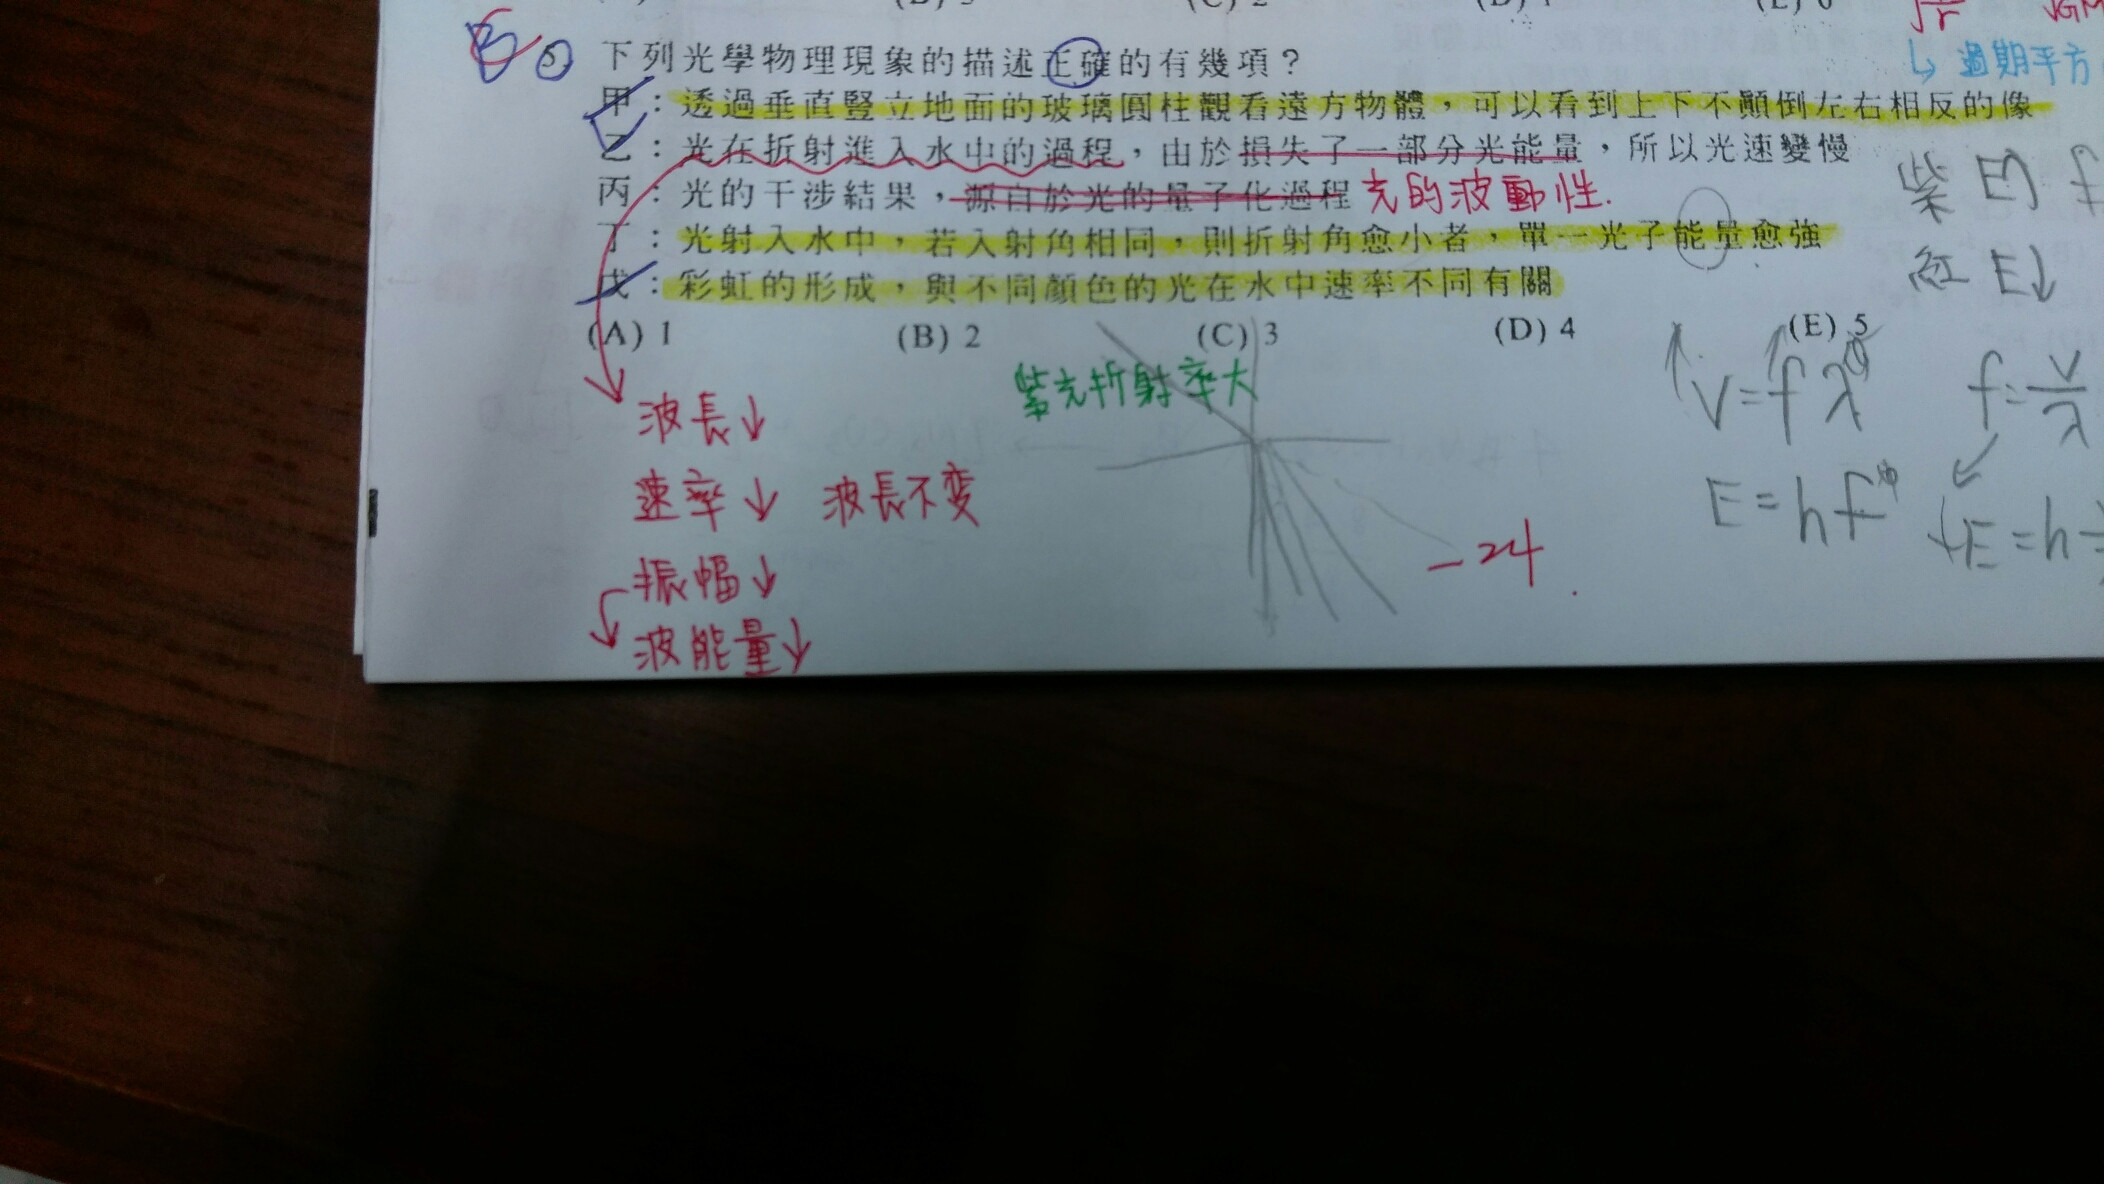 B 5. 下列光學物理現象的描述正確的有幾項？
甲：透過垂直豎立地面的玻璃圓柱觀看遠方物體，可以看到上下不顛倒左右相反的像
乙：光在折射進入水中的過程，由於損失了一部分光能量，所以光速變慢
丙：光的干涉結果，源自於光的量子化過程 光的波動性.
丁：光射入水中，若入射角相同，則折射角愈小者，單一光子能量愈強
戊：彩虹的形成，與不同顏色的光在水中速率不同有關
(A) 1 (B) 2 (C) 3 (D) 4 (E) 5
↳ 週期平方
紫 E↑ f
紅 E↓
紫光折射率大
波長↓
速率↓ 波長不变
振幅↓
波能量↓
-24
V=fλ
f=v/λ
E=hf